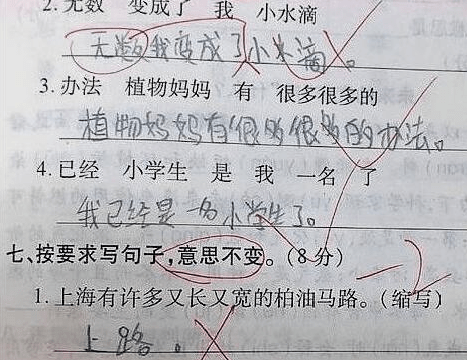 2.无数 变成了 我 小水滴
无数我变成了小水滴。
3.办法 植物妈妈 有 很多很多的
植物妈妈有很多很多的办法。
4.已经 小学生 是 我 一名 了
我已经是一名小学生了。
七、按要求写句子,意思不变。(8分)
1.上海有许多又长又宽的柏油马路。(缩写)
上路。